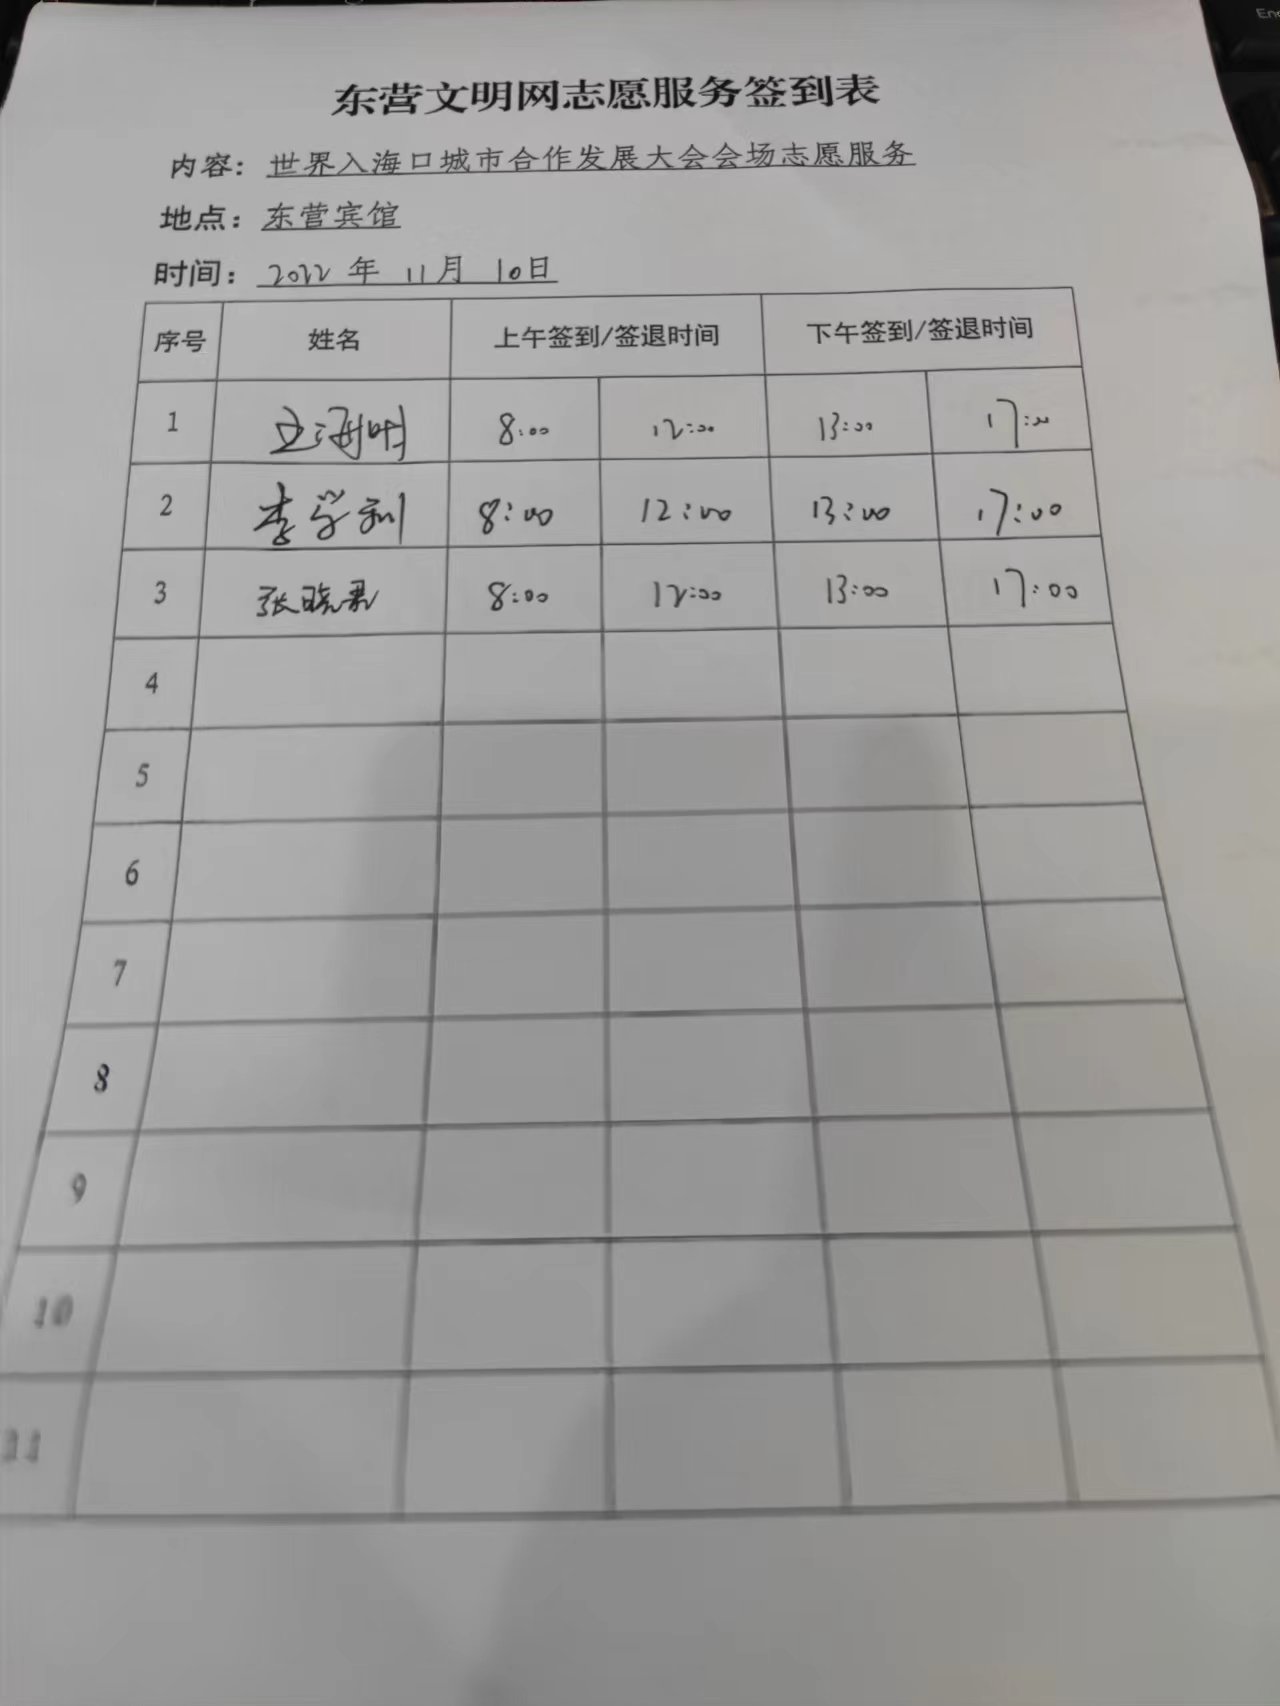 东营文明网志愿服务签到表
内容：世界入海口城市合作发展大会会场志愿服务
地点：东营宾馆
时间：2022 年 11月 10日
序号 姓名 上午签到/签退时间 下午签到/签退时间
1 8:00 12:00 13:00 17:00
2 李学利 8:00 12:00 13:00 17:00
3 张晓君 8:00 12:00 13:00 17:00
4
5
6
7
8
9
10
11